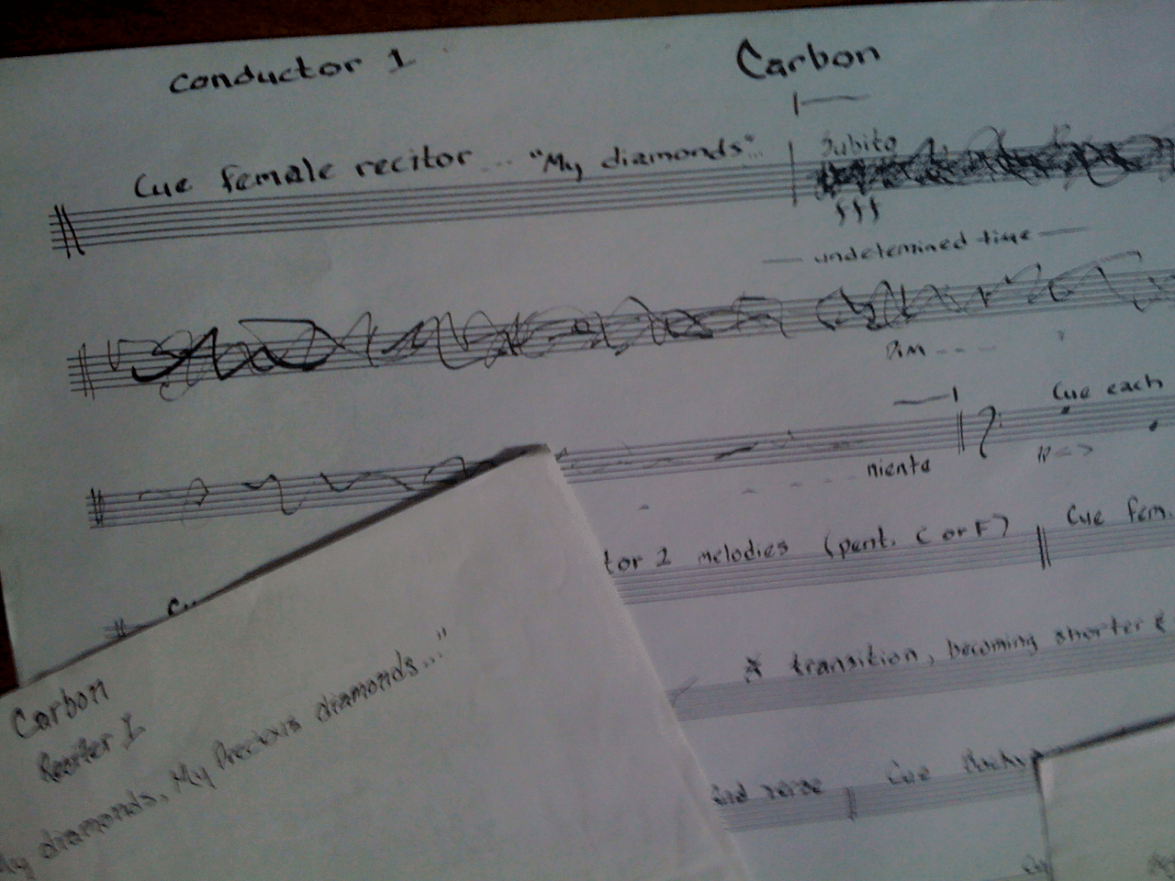 Conductor 1
Carbon
Cue female recitor ... "My diamonds"...
Subito
fff
undetermined time
Dim - - -
Cue each
niente
tor 2 melodies (pent. C or F)
Cue fem.
* transition, becoming shorter &
2nd verse
Cue
Carbon
Reciter 1
My diamonds, My Precious diamonds..."